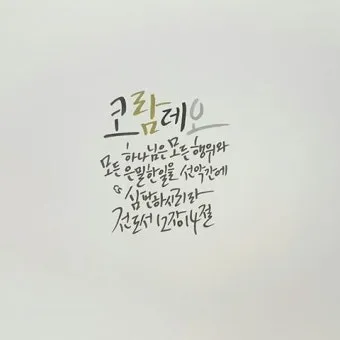 코람데오
하나님은 모든 행위와
모든 은밀한 일을 선악간에
심판하시리라
전도서 12장 14절